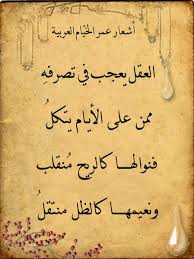 أشعار عمر الخيام العربية
العقل يعجب في تصرفه
ممن على الأيام يتكلُ
فنوالها كالريح مُنقلب
ونعيمها كالظل منتقلُ